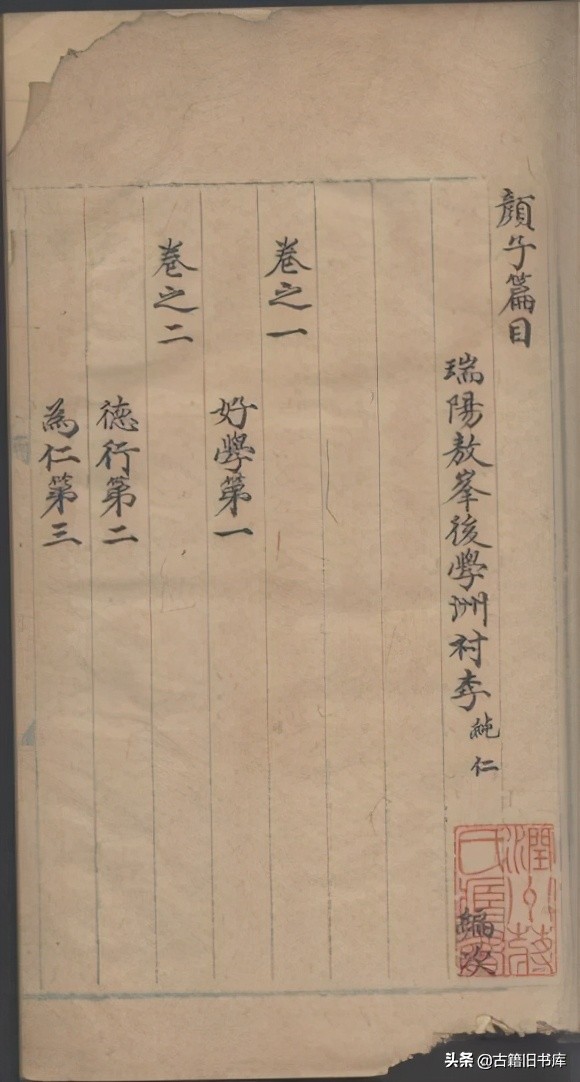 顔子篇目
瑞陽敖峯後學洲村李純仁編次
卷之一
好學第一
卷之二
德行第二
為仁第三
潤州蔣
氏臧書
头条 @古籍旧书库